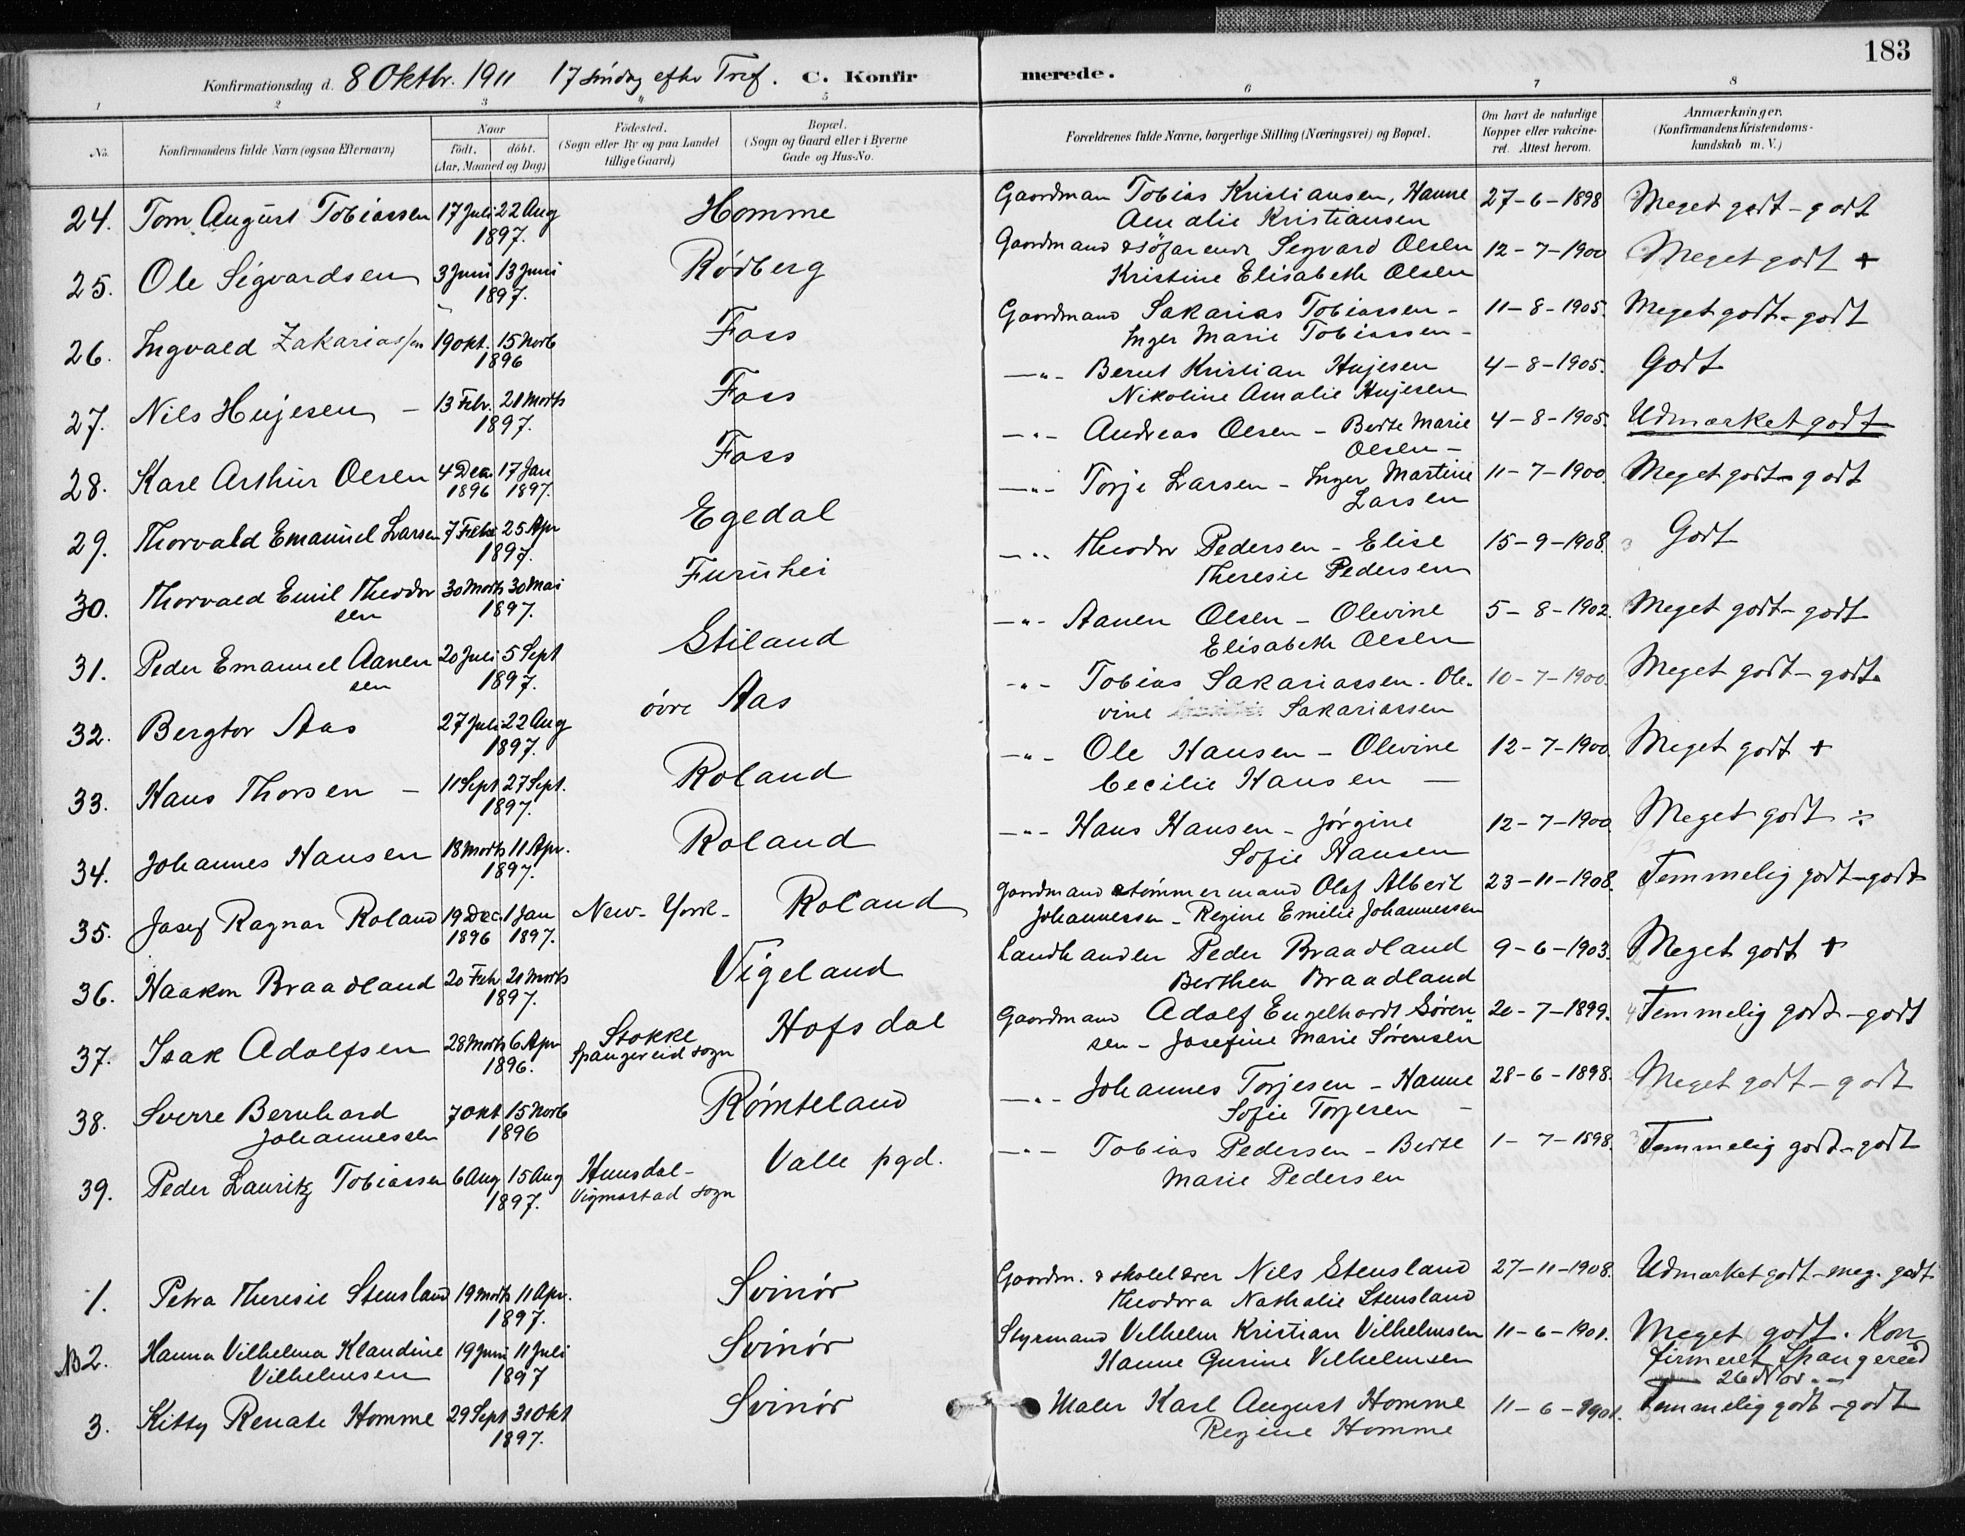 183
Konfirmationsdag d. 8 Oktbr. 1911 17 søndag efter Tref. C. Konfirmerede.
1 2 3 4 5 6 7 8
No. Konfirmandens fulde Navn (ogsaa Efternavn) Naar født, døbt. (Aar, Maaned og Dag) Fødested. (Sogn eller By og paa Landet tillige Gaard) Bopæl. (Sogn og Gaard eller i Byerne Gade og Hus-No. Forældrenes fulde Navne, borgerlige Stilling (Næringsvei) og Bopæl. Om havt de naturlige Kopper eller vakcineret. Attest herom. Anmærkninger. (Konfirmandens Kristendomskundskab m. V.)
24. Tom August Tobiassen 17 Juli 22 Aug 1897. Homme Gaardman Tobias Kristiansen, Hanne Amalie Kristiansen 27-6-1898 Meget godt-godt
25. Ole Sigvardsen 3 Juni 13 Juni 1897. Rødberg Gaardmand & söfarende Segvard Olsen Kristine Elisabeth Olsen 12-7-1900 Meget godt +
26. Ingvald Zakariassen 19 okt. 15 Novb 1896 Foss Gaardmand Sakarias Tobiassen - Inger Marie Tobiassen - 11-8-1905. Meget godt-godt
27. Nils Hujesen - 13 Febr. 21 Marts 1897. Foss -"- Bernt Kristian Hujesen Nikoline Amalie Hujesen 4-8-1905. Godt
28. Kare Arthur Olsen 4 Dec. 1896 17 Jan 1897. Foss -"- Andreas Olsen - Berte Marie Olsen - 4-8-1905. Udmærket godt
29. Thorvald Emanuel Larsen 7 Febr 25 Apr 1897. Egedal -"- Torje Larsen - Inger Martine Larsen 11-7-1900 Meget godt-godt
30. Thorvald Emil Theodorsen 30 Marts 30 Mai 1897. Furuhei -"- Theodor Pedersen - Elise Theresie Pedersen 15-9-1908 Godt
31. Peder Emanuel Aanensen 20 Juli 5 Sept 1897. Stiland -"- Aanen Olsen - Olevine Elisabeth Olsen 5-8-1902 Meget godt-godt
32. Bergtor Aas 27 Juli 22 Aug 1897. övre Aas -"- Tobias Sakariassen - Olevine Sakariassen 10-7-1900. Meget godt-godt
33. Hans Thorsen - 11 Sept 27 Sept. 1897. Roland -"- Ole Hansen - Olevine Cecilie Hansen - 12-7-1900 Meget godt +
34. Johannes Hansen 18 Marts 11 Apr. 1897. Roland -"- Hans Hansen - Jørgine Sofie Hansen 12-7-1900 Meget godt ÷
35. Josef Ragnar Roland 19 Dec. 1896 1 Jan 1897. New-York- Roland Gaardmand & tømmermand Olaf Albert Johannessen - Regine Emilie Johannessen 23-11-1908. Temmelig godt-godt
36. Haakon Braadland 20 Febr 21 Marts 1897. Vigeland Landhandler Peder Braadland Berthea Braadland 9-6-1903. Meget godt +
37. Isak Adolfsen 28 Marts 6 Apr 1896. Stokke Spangereid sogn Hofsdal Gaardmand Adolf Engelhardt Sørensen - Josefine Marie Sørensen 20-7-1899. Temmelig godt-godt
38. Sverre Bernhard Johannessen 7 okt 15 Novb 1896 Rømteland -"- Johannes Torjesen - Hanne Sofie Torjesen - 28-6-1898. Meget godt-godt
39. Peder Lauritz Tobiassen 6 Aug 15 Aug 1897. Hunsdal- Vigmostad sogn Valle pgd. -"- Tobias Pedersen - Berte Marie Pedersen 1-7-1898. Temmelig godt-godt
1. Petra Theresie Stensland 19 Marts 11 Apr. 1897. Svinör Gaardm. & skolelærer Nils Stensland Theodora Nathalie Stensland 27-11-1908. Udmærket godt-meg. godt
NB 2. Hanna Vilhelma Klandine Vilhelmsen 19 Juni 11 Juli 1897 Svinör Styrmand Vilhelm Kristian Vilhelmsen Hanne Gurine Vilhelmsen 11-6-1901. Meget godt. Konfirmeret Spangereid 26 Nov.-
3. Kitty Renate Homme 29 Sept 31 Okt 1897. Svinör Maler Karl August Homme Regine Homme 11-6-1901. Temmelig godt-godt